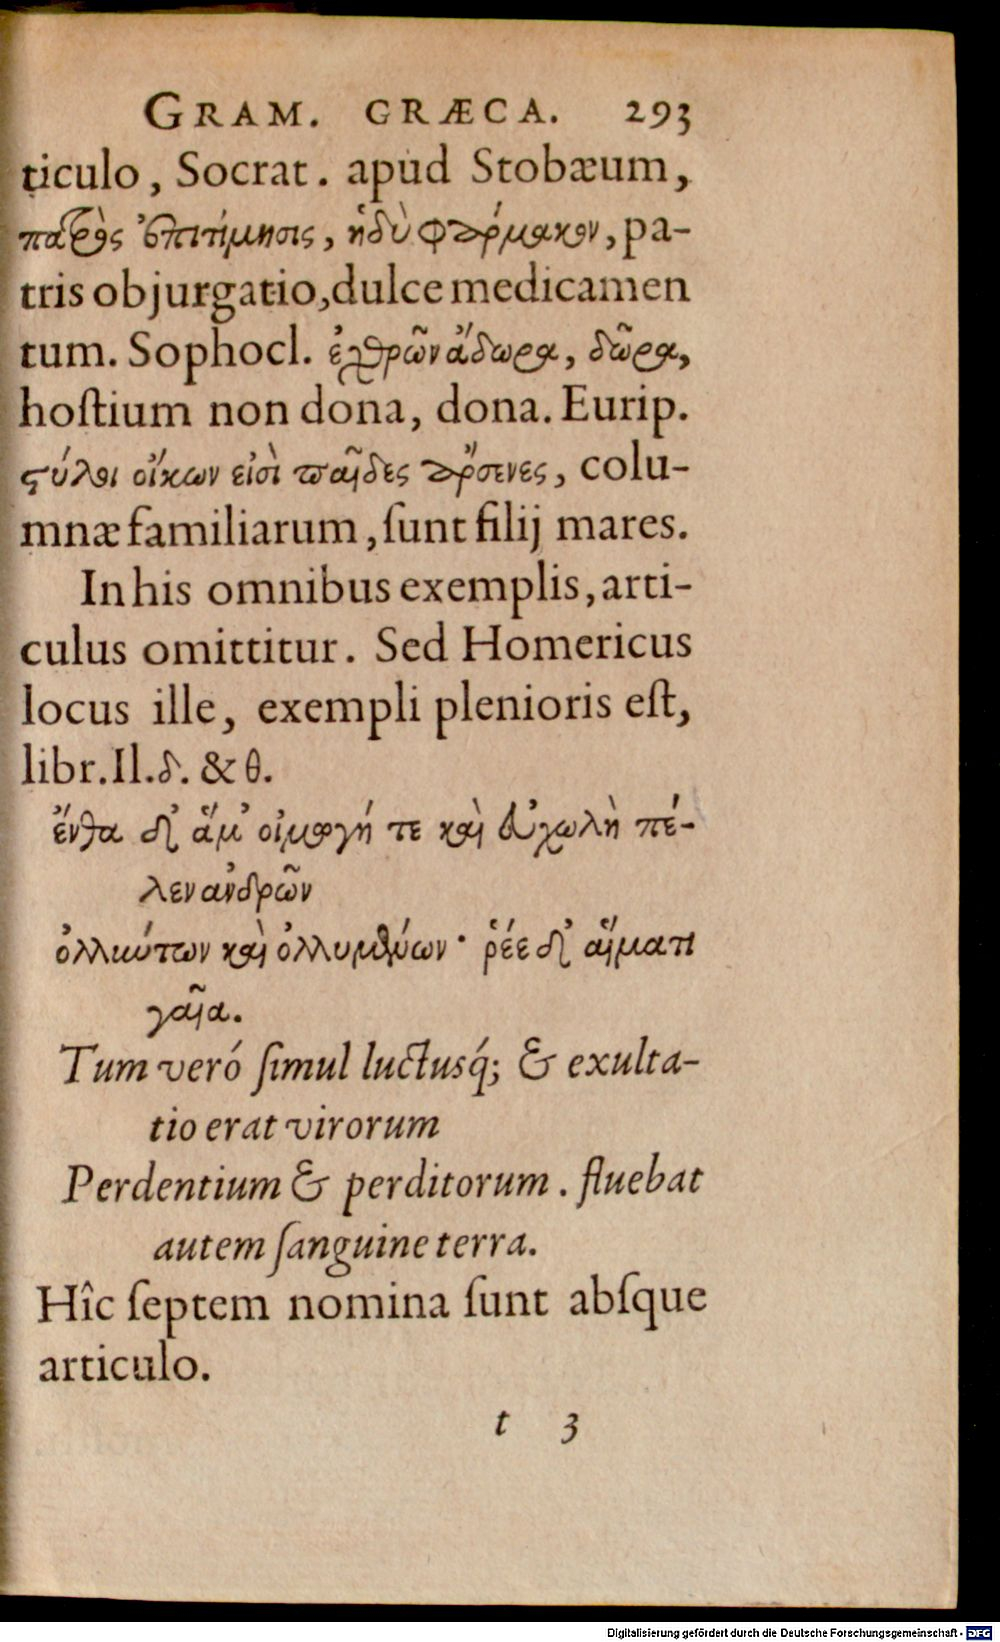 GRAM. GRÆCA. 293
ticulo, Socrat. apud Stobæum,
πατρὸς ἐπιτίμησις, ἡδὺ φάρμακον, pa-
tris objurgatio, dulce medicamen
tum. Sophocl. ἐχθρῶν ἄδωρα, δῶρα,
hoſtium non dona, dona. Eurip.
στύλοι οἴκων εἰσὶ παῖδες ἄρσενες, colu-
mnæ familiarum, ſunt filij mares.
In his omnibus exemplis, arti-
culus omittitur. Sed Homericus
locus ille, exempli plenioris eſt,
libr. Il. δ. & θ.
ἔνθα δ' ἅμ' οἰμωγή τε καὶ εὐχωλὴ πέ-
λεν ἀνδρῶν
ὀλλύντων καὶ ὀλλυμένων· ῥέε δ' αἵματι
γαῖα.
Tum veró ſimul luctusq́; & exulta-
tio erat virorum
Perdentium & perditorum. fluebat
autem ſanguine terra.
Hîc ſeptem nomina ſunt abſque
articulo.
t 3
Digitalisierung gefördert durch die Deutsche Forschungsgemeinschaft - DFG